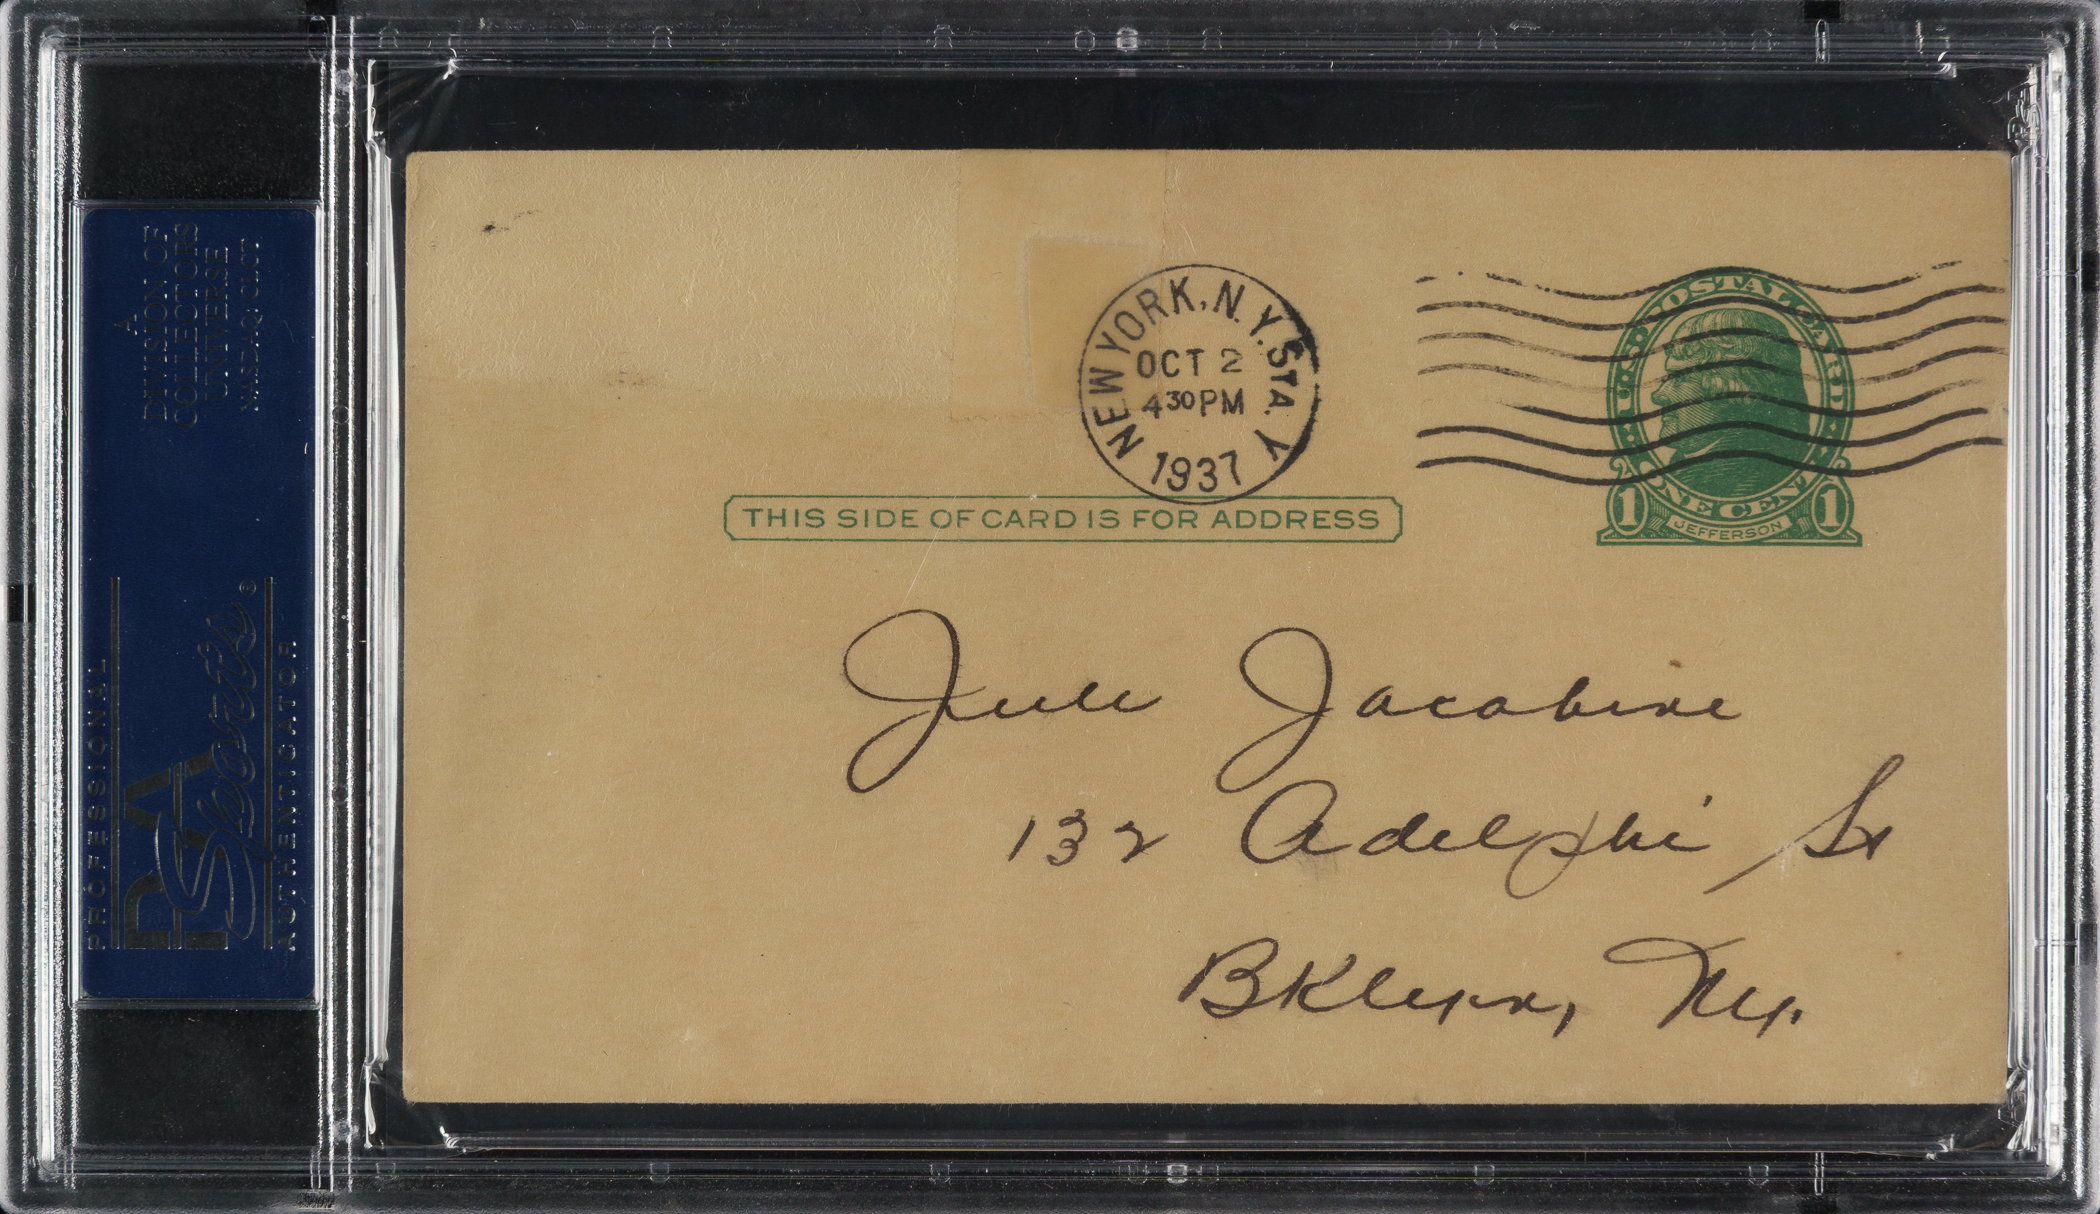 A
DIVISION OF
COLLECTORS
UNIVERSE
NASDAQ: CLCT
PROFESSIONAL
PSA
Sports®
AUTHENTICATOR
NEW YORK, N.Y. STA. Y
OCT 2
4 30 PM
1937
U·S· POSTAL CARD
ONE CENT
1 JEFFERSON 1
THIS SIDE OF CARD IS FOR ADDRESS
Jacobine
132 Adelphi St
BKlyn, Ny.